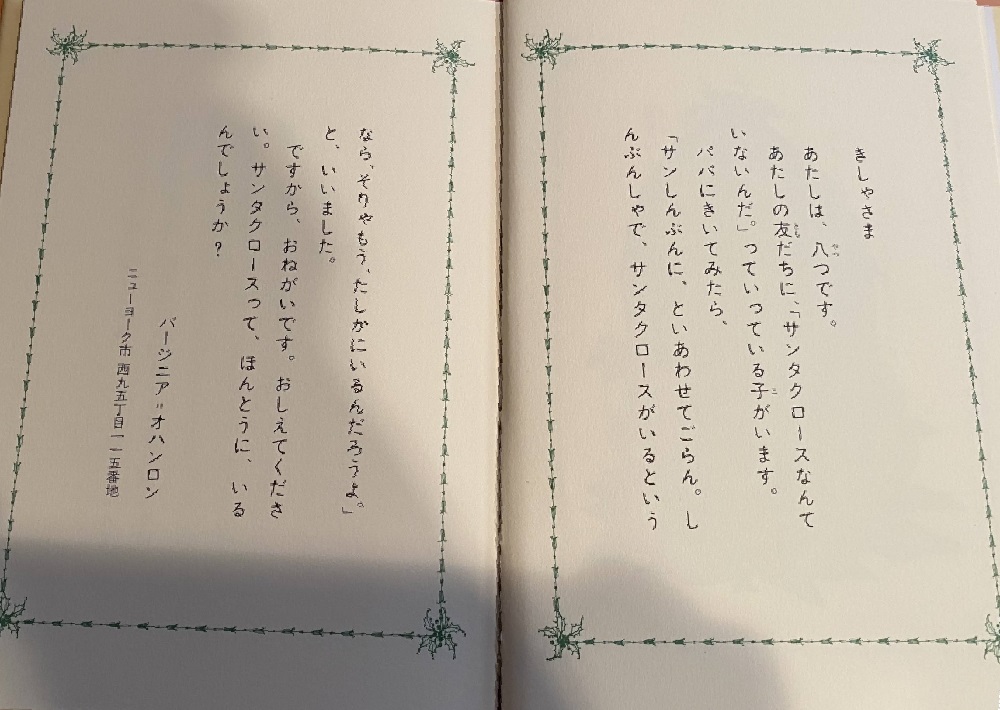 きしゃさま
あたしは、八つです。
あたしの友だちに、「サンタクロースなんて
いないんだ。」っていっている子がいます。
パパにきいてみたら、
「サンしんぶんに、といあわせてごらん。し
んぶんしゃで、サンタクロースがいるという
なら、そりゃもう、たしかにいるんだろうよ。」
と、いいました。
ですから、おねがいです。おしえてくださ
い。サンタクロースって、ほんとうに、いる
んでしょうか？
バージニア＝オハンロン
ニューヨーク市 西九五丁目一一五番地